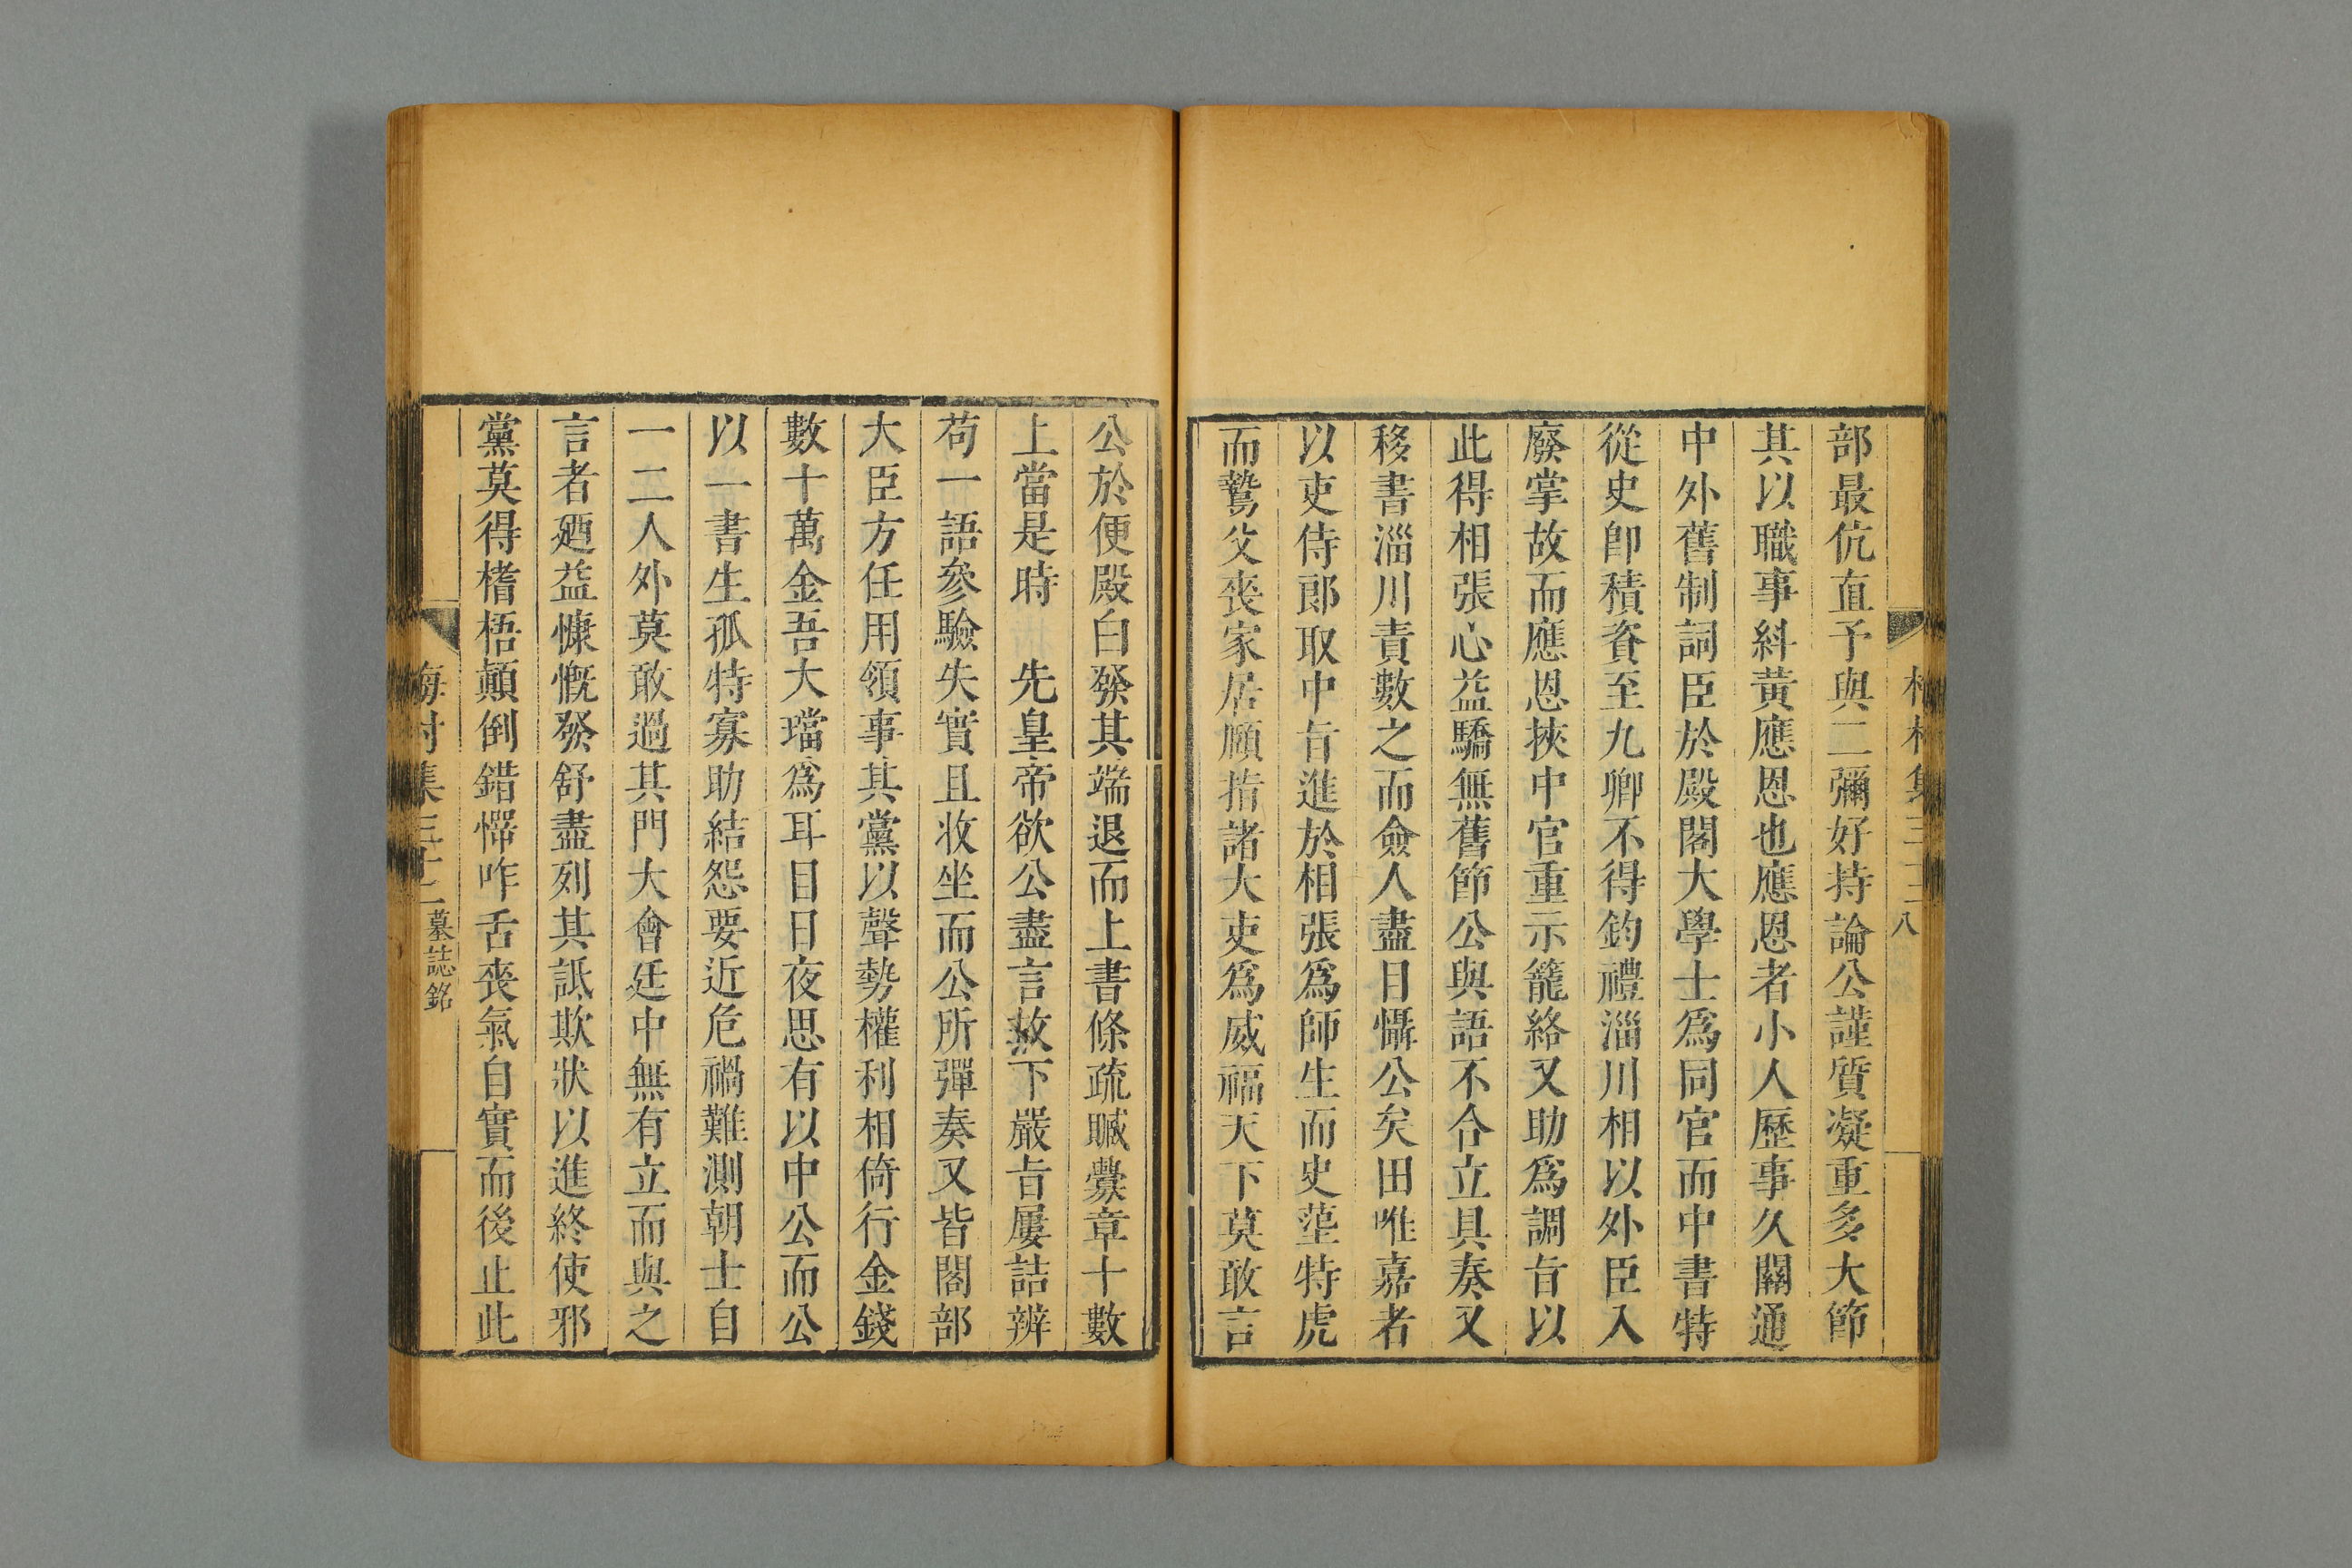 部最伉直予與二彌好持論公謹質凝重多大節
其以職事糾黃應恩也應恩者小人歷事久關通
中外舊制詞臣於殿閣大學士爲同官而中書特
從史卽積資至九卿不得鈞禮淄川相以外臣入
廢掌故而應恩挾中官重示籠絡又助爲調旨以
此得相張心益驕無舊節公與語不合立具奏又
移書淄川責數之而僉人盡目懾公矣田唯嘉者
以吏侍郞取中旨進於相張爲師生而史𡐨特虎
而鷙父喪家居頤指諸大吏爲威福天下莫敢言
八
公於便殿白發其端退而上書條疏贓釁章十數
上當是時　先皇帝欲公盡言故下嚴旨屢詰辨
苟一語參驗失實且收坐而公所彈奏又皆閣部
大臣方任用領事其黨以聲勢權利相倚行金錢
數十萬金吾大璫爲耳目日夜思有以中公而公
以一書生孤特寡助結怨要近危禍難測朝士自
一二人外莫敢過其門大會廷中無有立而與之
言者廼益慷慨發舒盡列其詆欺狀以進終使邪
黨莫得榰梧顛倒錯愕咋舌喪氣自實而後止此
梅村集三十二 墓誌銘